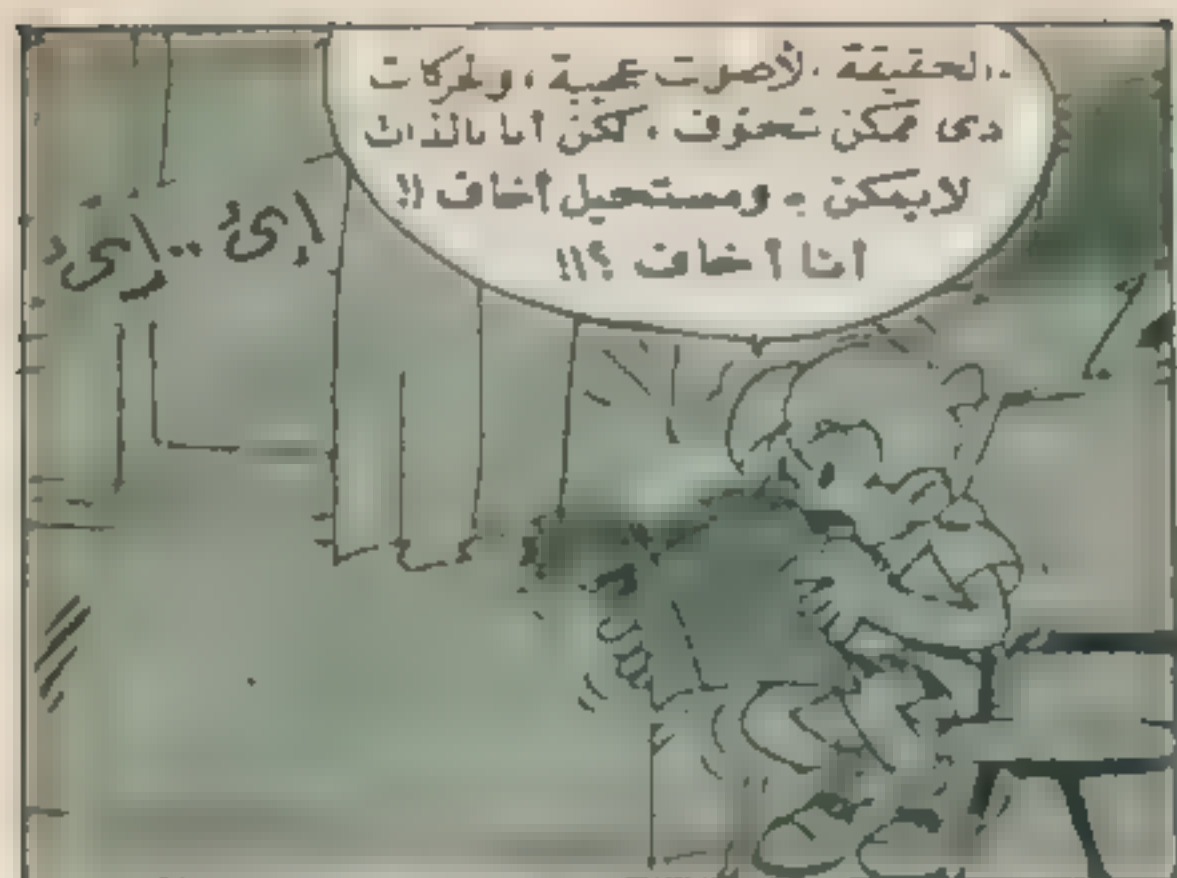 الحقيقة . لأصوت عجيبة ، ولحركات
دى ممكن تخوف ، لكن أنا بالذات
لايمكن - ومستحيل أخاف !!
أنا أخاف ؟!!
إىْ .. إىْ